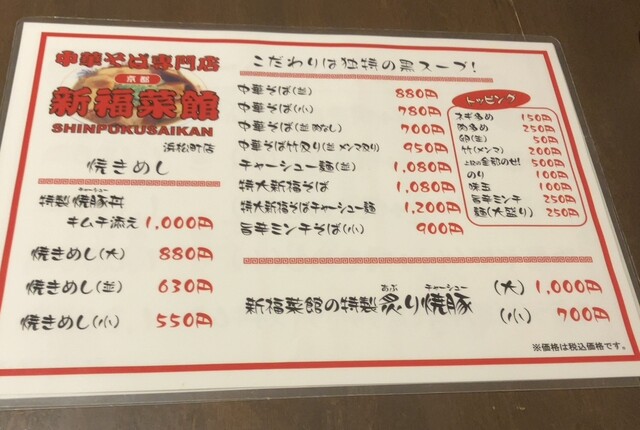 中華そば専門店
京都
新福菜館
SHINPUKUSAIKAN
浜松町店
焼きめし
チャーシュー
特製焼豚丼
キムチ添え 1,000円
焼きめし(大) 880円
焼きめし(並) 630円
焼きめし(小) 550円
こだわりは独特の黒スープ!
中華そば(並) 880円
中華そば(小) 780円
中華そば(並 肉なし) 700円
中華そば竹入り(並 メンマ入り) 950円
チャーシュー麺(並) 1,080円
特大新福そば 1,080円
特大新福そばチャーシュー麺 1,200円
ミンチそば(小) 900円
トッピング
ネギ多め 150円
肉多め 250円
卵(生) 50円
竹(メンマ) 200円
上記の全部のせ! 500円
のり 100円
味玉 100円
ミンチ 250円
麺(大盛り) 250円
あぶ チャーシュー
新福菜館の特製炙り焼豚 (大) 1,000円
(小) 700円
※価格は税込価格です。